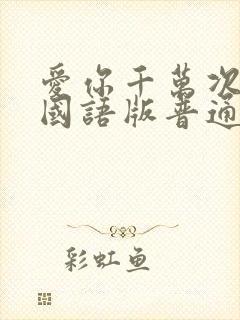 愛你千萬次
國語版普通
彩虹鱼